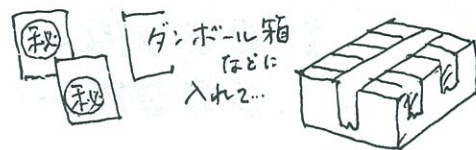 秘
秘
ダンボール箱
などに
入れて…